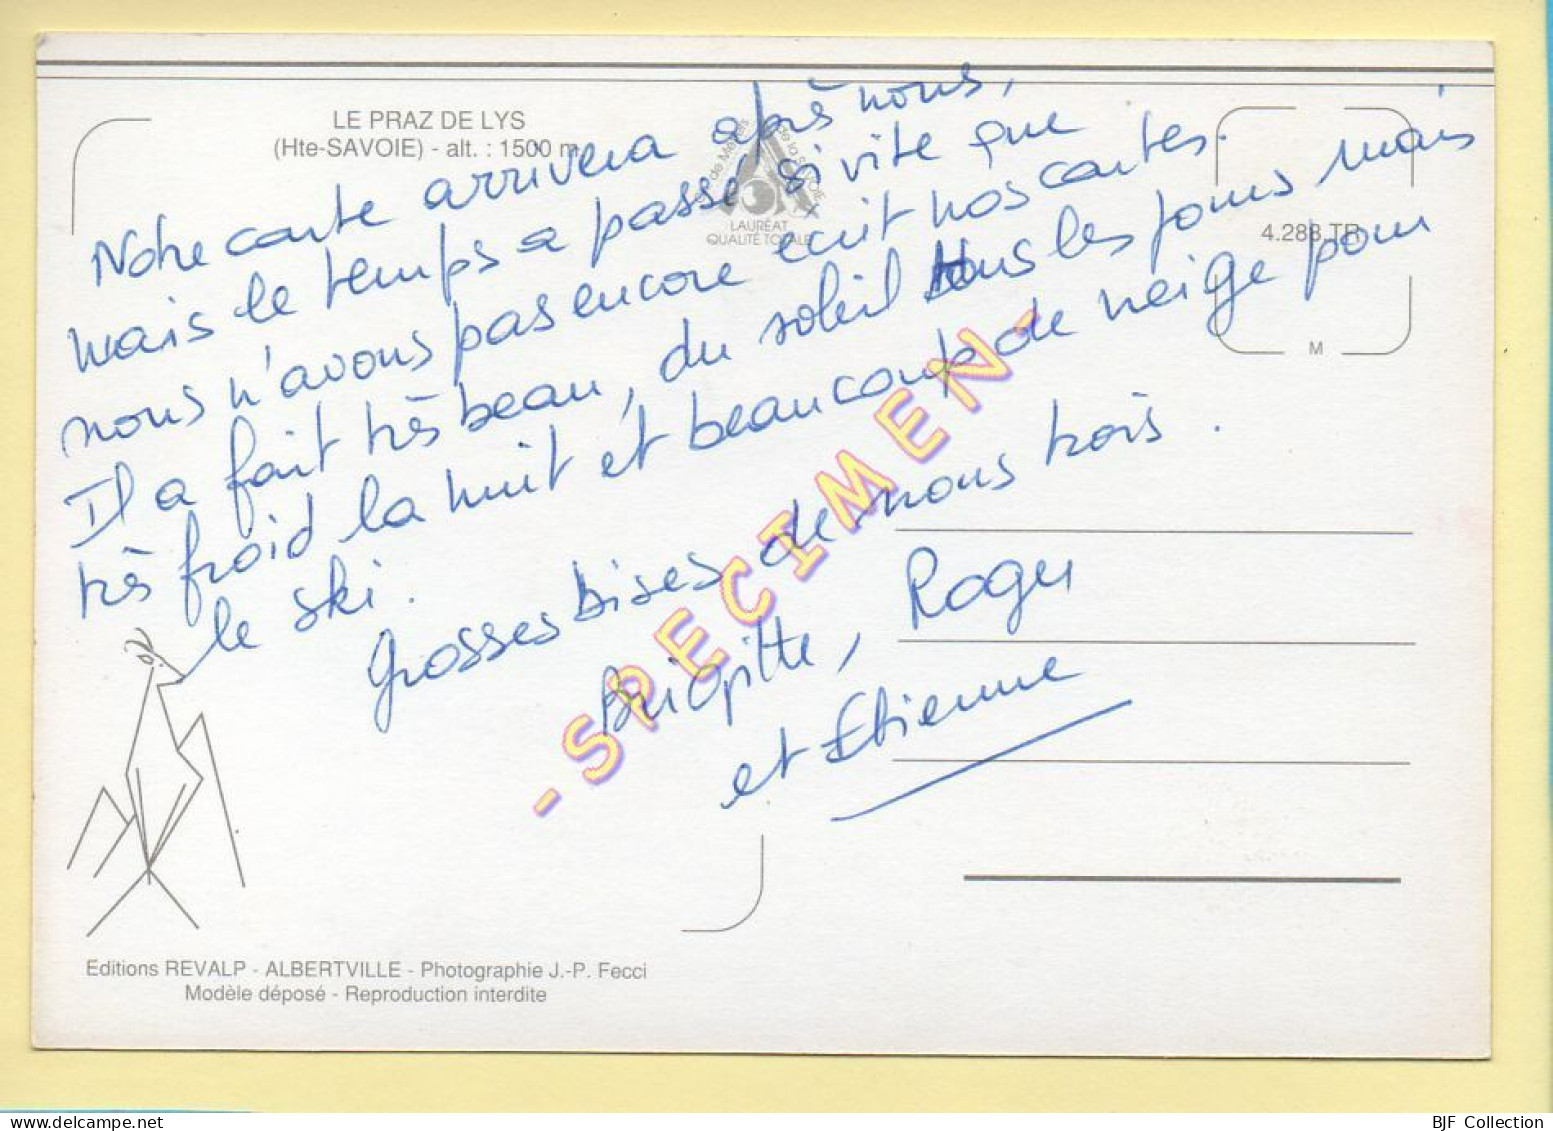 LE PRAZ DE LYS
(Hte-SAVOIE) - alt. : 1500 m
LAURÉAT
QUALITÉ TOTALE
4.288 TR
M
Notre carte arrivera après nous,
mais le temps a passé si vite que
nous n'avons pas encore écrit nos cartes.
Il a fait très beau, du soleil tous les jours mais
très froid la nuit et beaucoup de neige pour
le ski.
Grosses bises de nous trois.
Brigitte, Roger
et Etienne
- SPECIMEN -
Editions REVALP - ALBERTVILLE - Photographie J.-P. Fecci
Modèle déposé - Reproduction interdite
BJF Collection